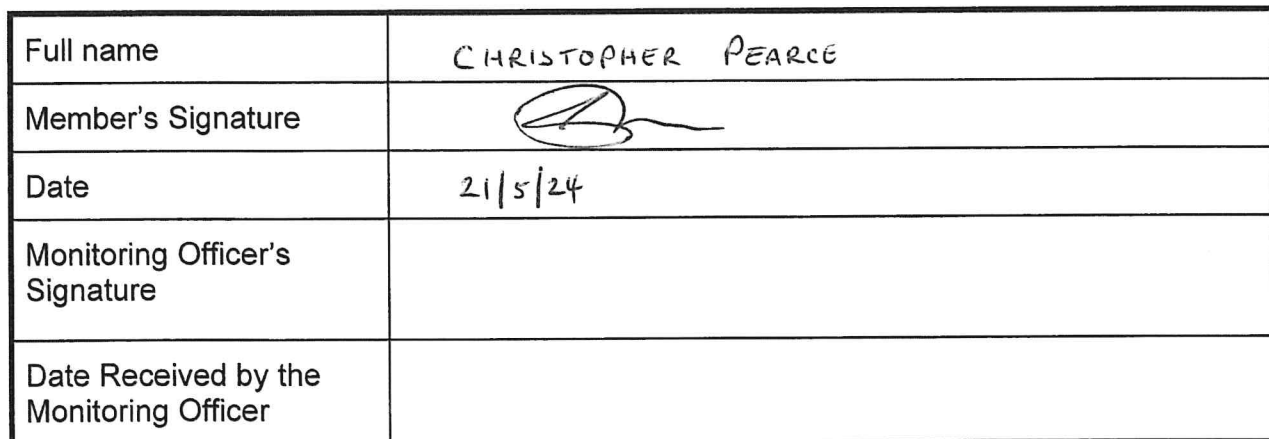 Full name CHRISTOPHER PEARCE
Member's Signature
Date 21/5/24
Monitoring Officer's
Signature
Date Received by the
Monitoring Officer